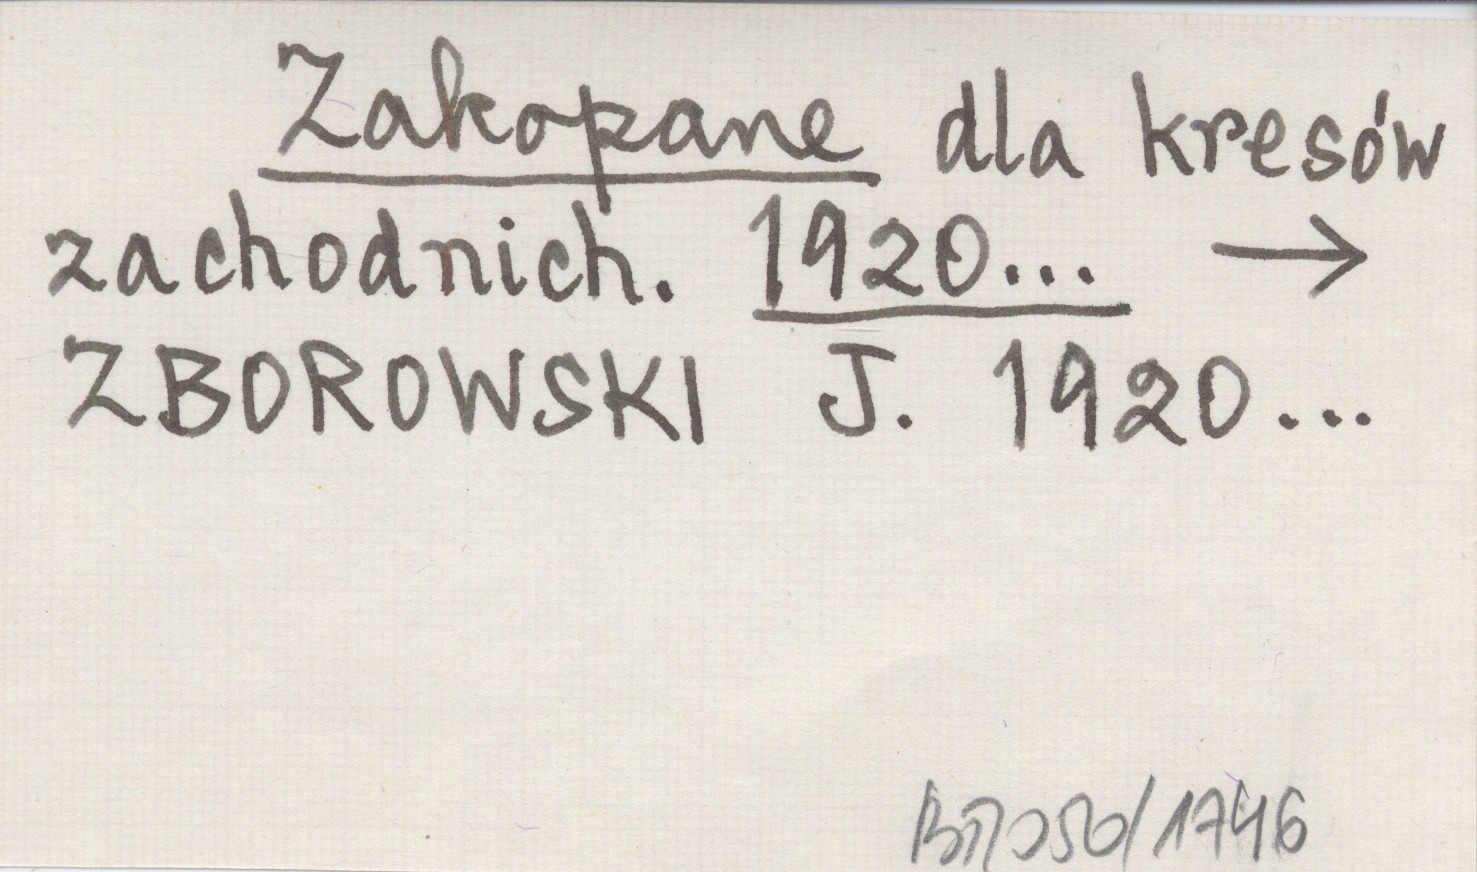 Zakopane dla kresów
zachodnich. 1920... →
ZBOROWSKI J. 1920...
/1746